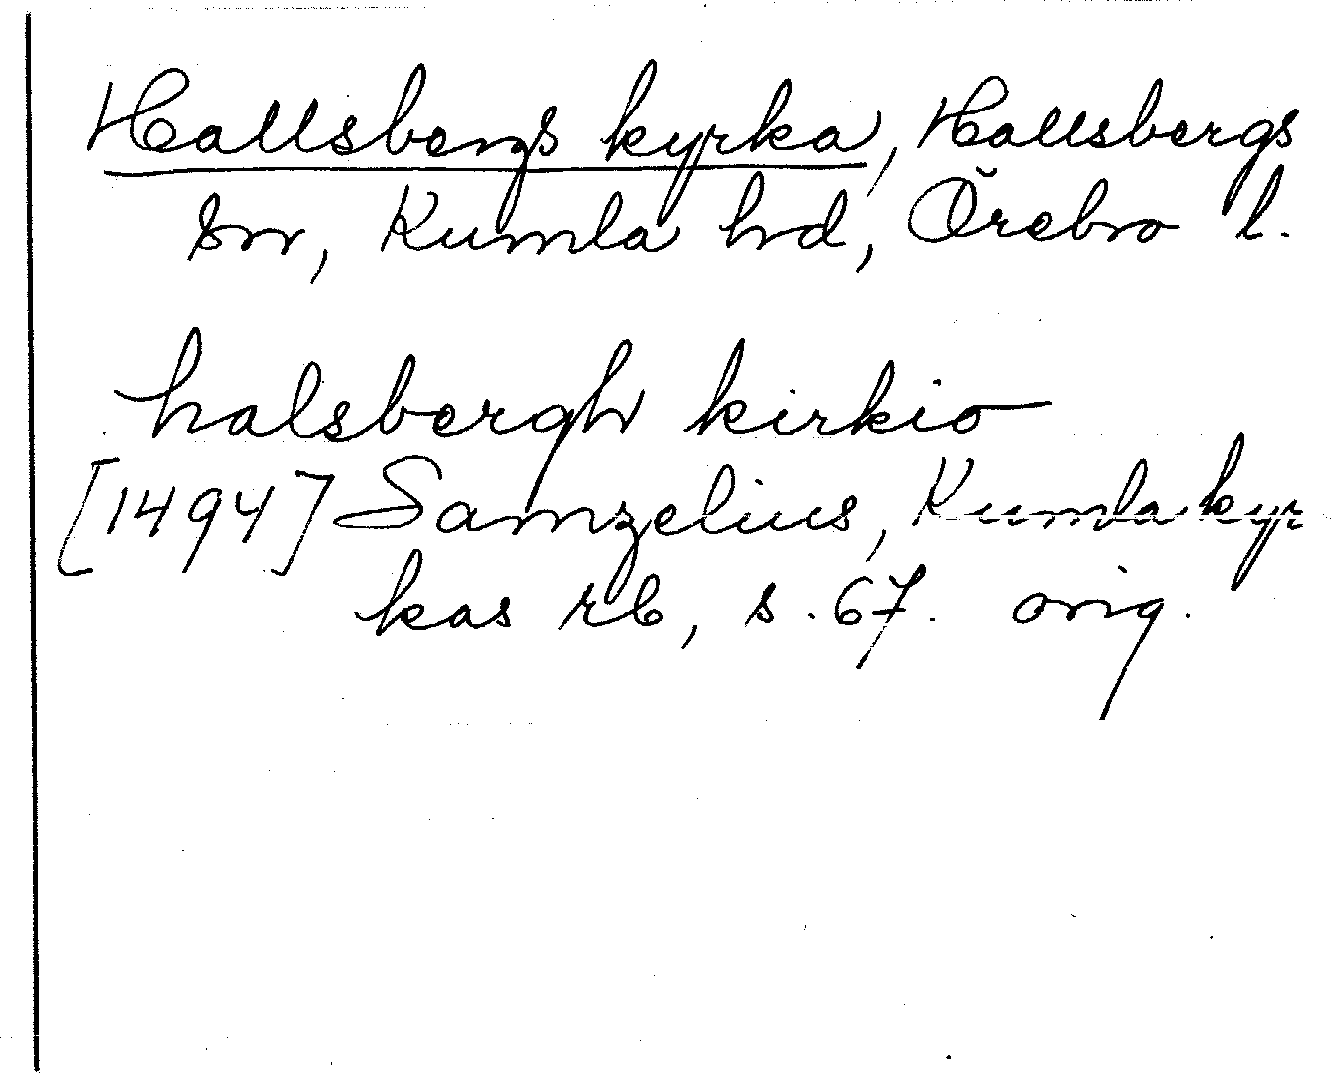 Hallsbergs kyrka, Hallsbergs
sn, Kumla hd, Örebro l.
halsbergh kirkio
[1494] Samzelius, Kumla kyr
kas rb, s. 67. orig.